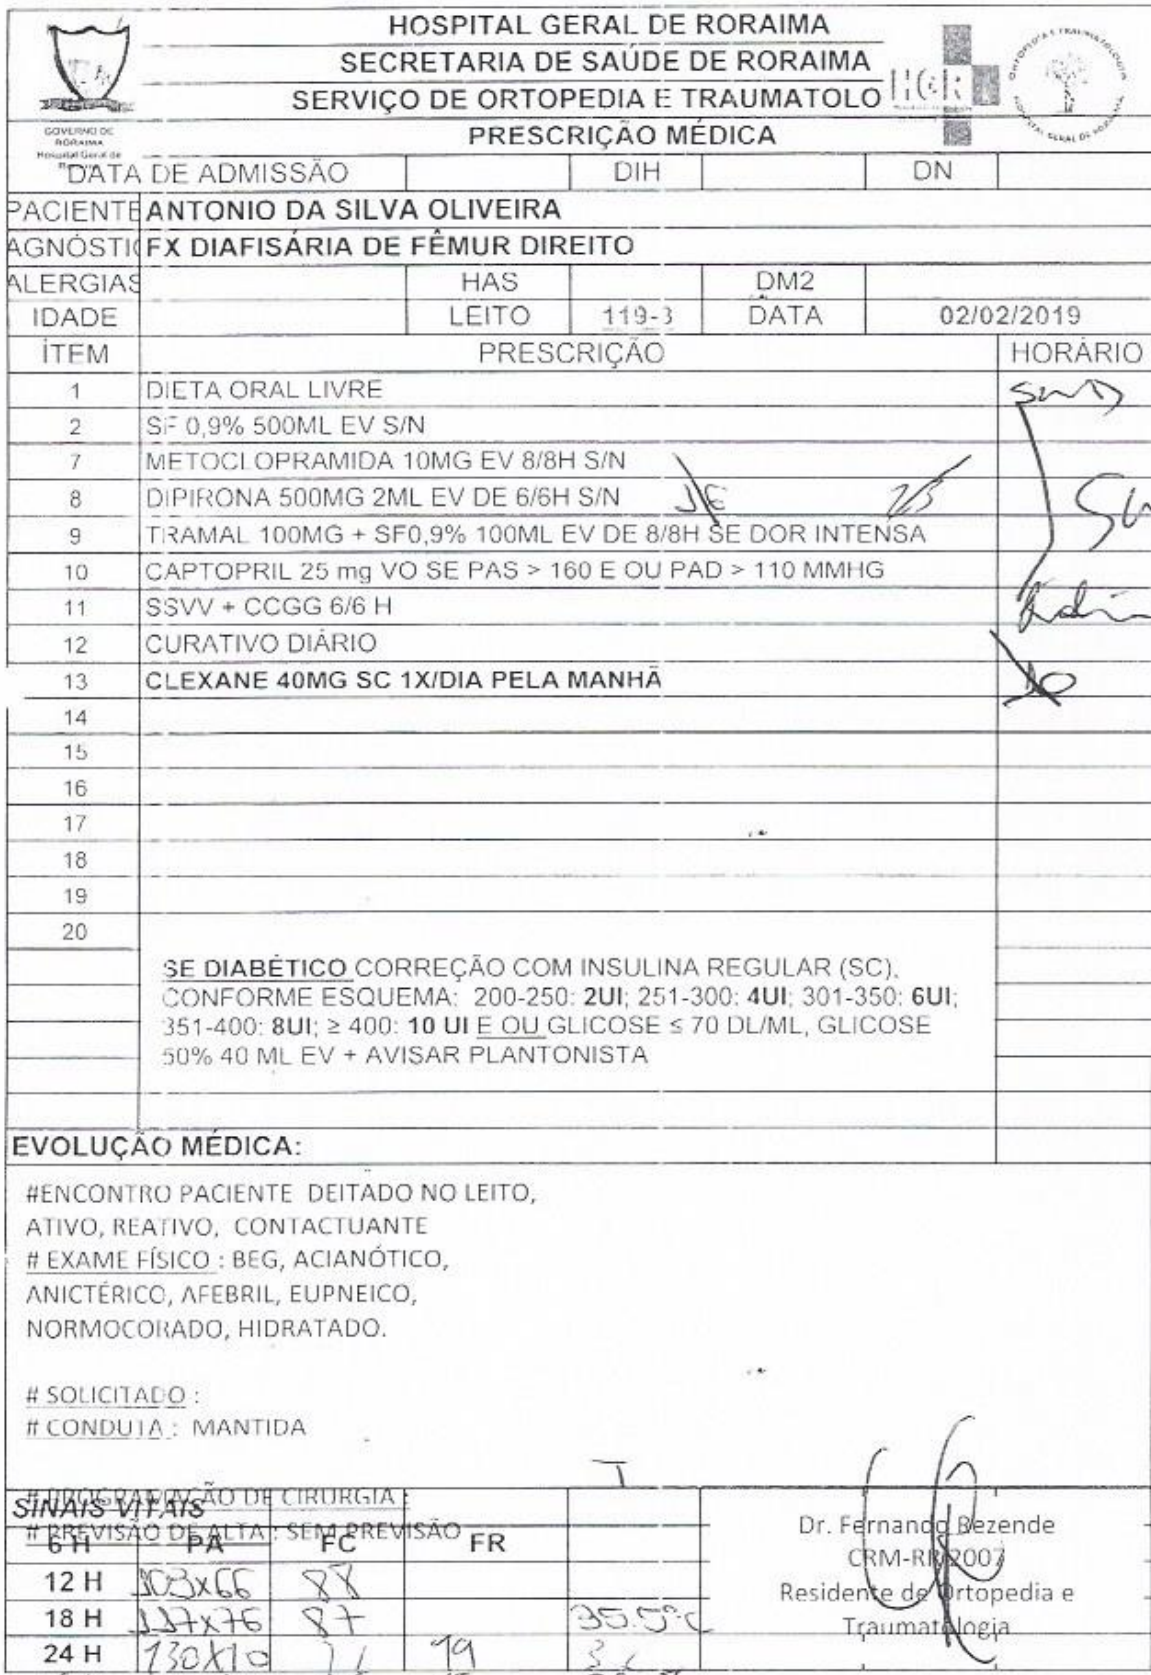 HOSPITAL GERAL DE RORAIMA
SECRETARIA DE SAÚDE DE RORAIMA
SERVIÇO DE ORTOPEDIA E TRAUMATOLO
HGR
PRESCRIÇÃO MÉDICA
GOVERNO DE
RORAIMA
Hospital Geral de
DATA DE ADMISSÃO DIH DN
PACIENTE ANTONIO DA SILVA OLIVEIRA
AGNÓSTI FX DIAFISÁRIA DE FÊMUR DIREITO
ALERGIAS HAS DM2
IDADE LEITO 119-3 DATA 02/02/2019
ÍTEM PRESCRIÇÃO HORÁRIO
1 DIETA ORAL LIVRE
2 SF 0,9% 500ML EV S/N
7 METOCLOPRAMIDA 10MG EV 8/8H S/N
8 DIPIRONA 500MG 2ML EV DE 6/6H S/N
9 TRAMAL 100MG + SF0,9% 100ML EV DE 8/8H SE DOR INTENSA
10 CAPTOPRIL 25 mg VO SE PAS > 160 E OU PAD > 110 MMHG
11 SSVV + CCGG 6/6 H
12 CURATIVO DIÁRIO
13 CLEXANE 40MG SC 1X/DIA PELA MANHÃ
14
15
16
17
18
19
20
SE DIABÉTICO CORREÇÃO COM INSULINA REGULAR (SC),
CONFORME ESQUEMA: 200-250: 2UI; 251-300: 4UI; 301-350: 6UI;
351-400: 8UI; ≥ 400: 10 UI E OU GLICOSE ≤ 70 DL/ML, GLICOSE
50% 40 ML EV + AVISAR PLANTONISTA
EVOLUÇÃO MÉDICA:
#ENCONTRO PACIENTE DEITADO NO LEITO,
ATIVO, REATIVO, CONTACTUANTE
# EXAME FÍSICO : BEG, ACIANÓTICO,
ANICTÉRICO, AFEBRIL, EUPNEICO,
NORMOCORADO, HIDRATADO.
# SOLICITADO :
# CONDUTA : MANTIDA
# PROGRAMAÇÃO DE CIRURGIA :
SINAIS VITAIS
# PREVISÃO DE ALTA : SEM PREVISÃO
6 H PA FC FR
12 H 103x66 88
18 H 117x76 87 35.5°C
24 H 19
Dr. Fernando Rezende
CRM-RR 2007
Residente de Ortopedia e
Traumatologia